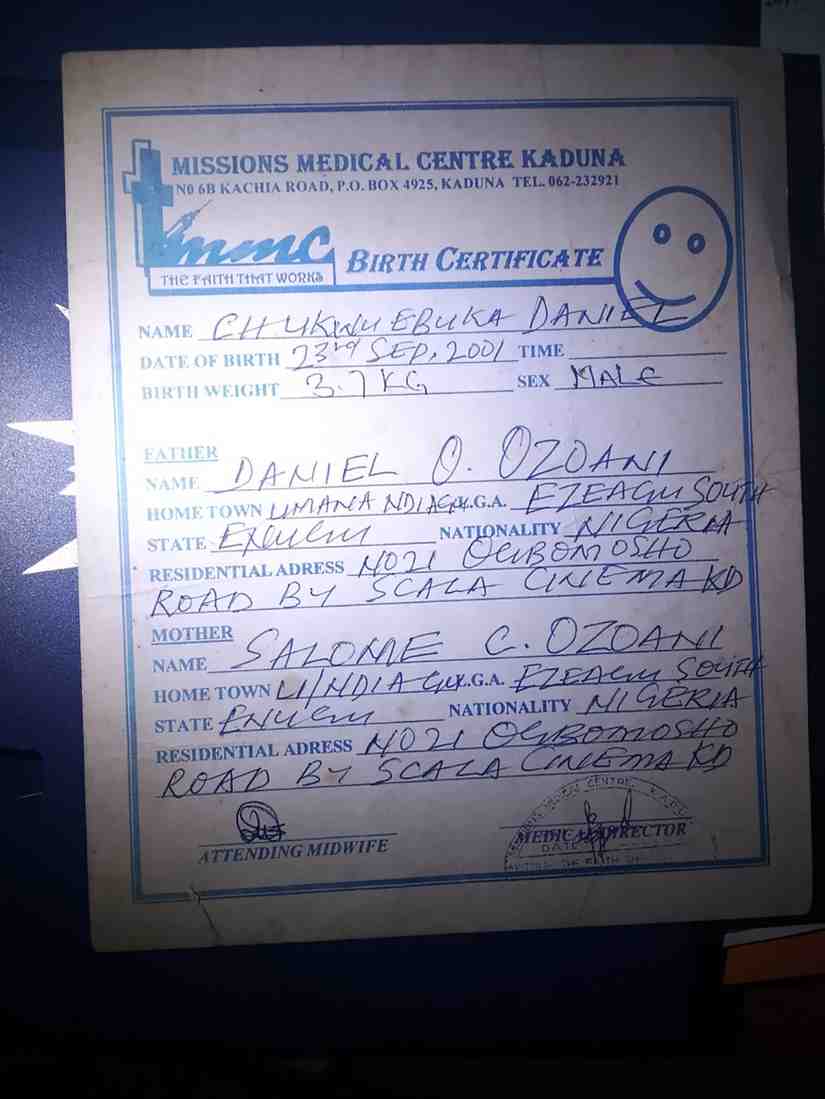 MISSIONS MEDICAL CENTRE KADUNA
N0 6B KACHIA ROAD, P.O. BOX 4925, KADUNA TEL. 062-232921
mmc
THE FAITH THAT WORKS
BIRTH CERTIFICATE
NAME CHUKWUEBUKA DANIEL
DATE OF BIRTH 23rd SEP, 2001 TIME
BIRTH WEIGHT 3.7 KG SEX MALE
FATHER
NAME DANIEL O. OZOANI
HOME TOWN UMANA NDIAGU L.G.A. EZEAGU SOUTH
STATE ENUGU NATIONALITY NIGERIA
RESIDENTIAL ADRESS NO 21 OGBOMOSHO
ROAD BY SCALA CINEMA KD
MOTHER
NAME SALOME C. OZOANI
HOME TOWN U/NDIAGU L.G.A. EZEAGU SOUTH
STATE ENUGU NATIONALITY NIGERIA
RESIDENTIAL ADRESS NO 21 OGBOMOSHO
ROAD BY SCALA CINEMA KD
ATTENDING MIDWIFE MEDICAL DIRECTOR
DATE